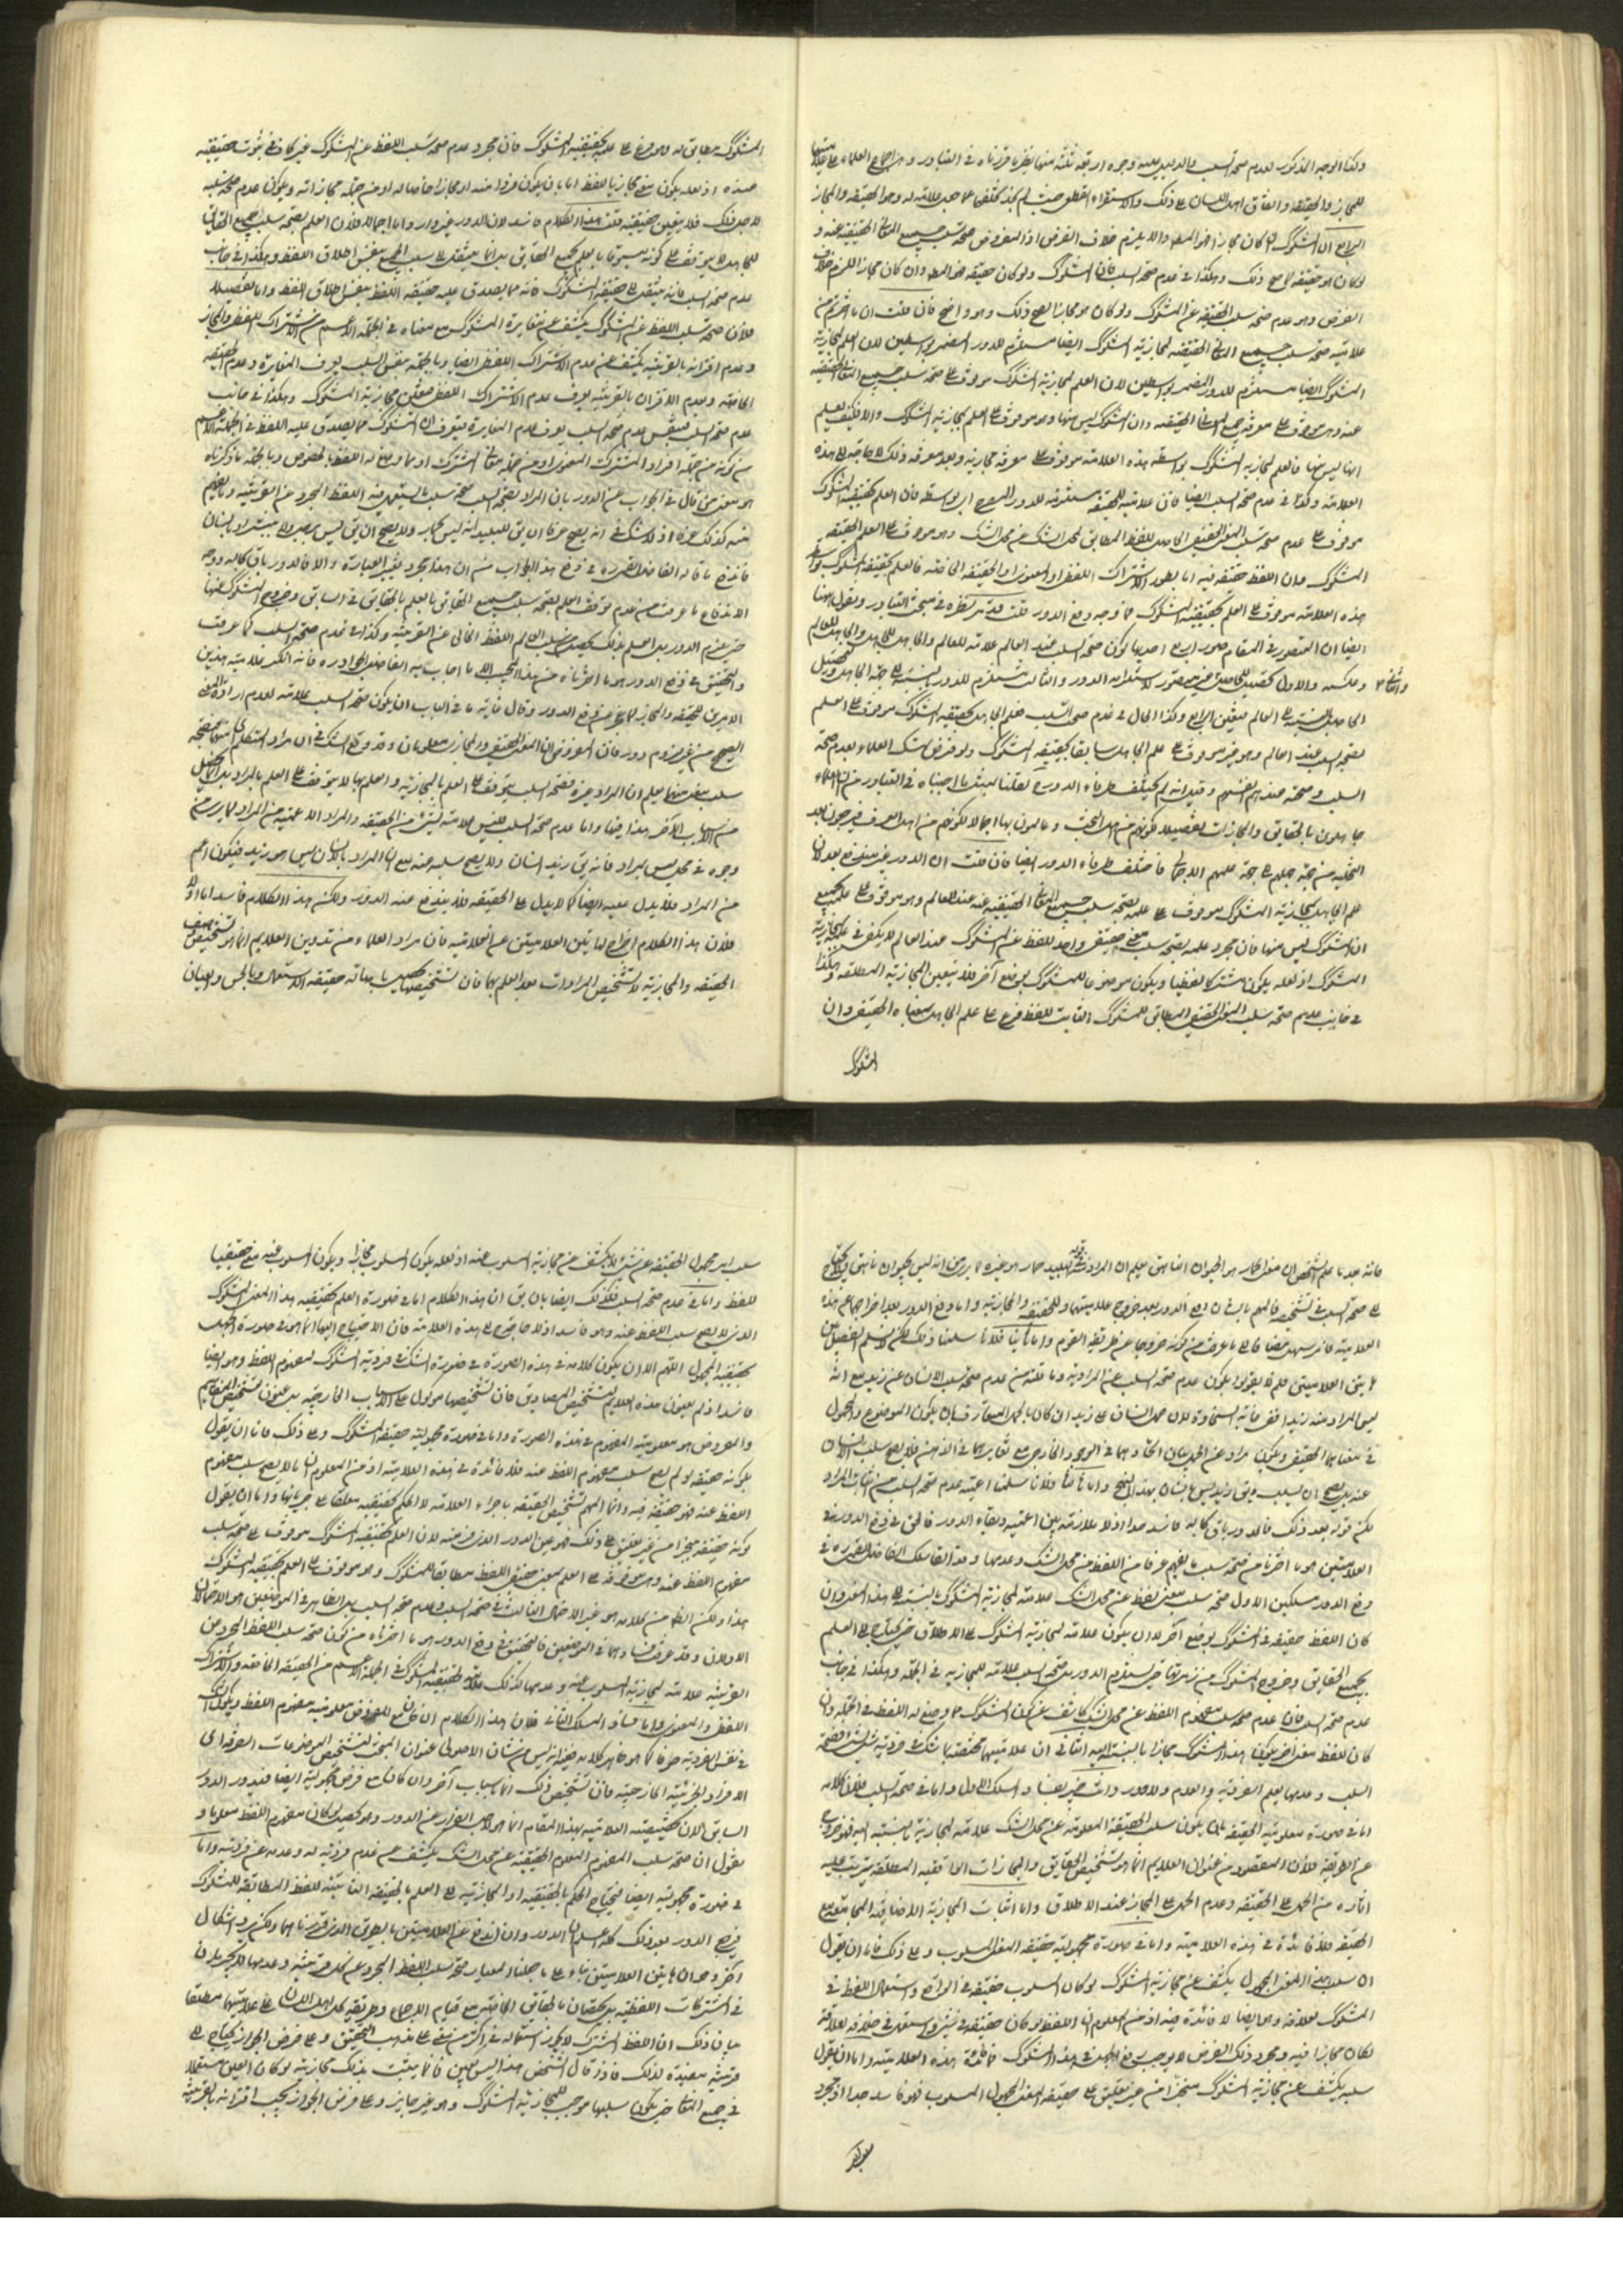 وكذا الوجه المذكور لعدم صحة السلب والدليل عليه وجوه اربعة ثلثة منها يظهر ما قررناه في التبادر وهو اجماع العلماء على
للمجاز والحقيقة واتفاق اهل اللسان على ذلك والاستقراء القطعي حيث لم نجد
الرابع ان المشكوك لو كان مجازا فهو المط والا يلزم خلاف الفرض اذ المفروض صحة سلب جميع المعاني الحقيقية عنه و
لو كان هو حقيقة لم يصح ذلك وهكذا في عدم صحة السلب فان المشكوك لو كان حقيقة فهو المط وان كان مجازا لزم خلاف
الفرض وهو عدم صحة سلب الحقيقة عن المشكوك ولو كان هو مجازا لصح ذلك وهو واضح فان قلت ان
علامية صحة سلب جميع المعاني الحقيقية لمجازية المشكوك ايضا مستلزم للدور المضمر بواسطتين لان العلم بمجازية
المشكوك ايضا مستلزم للدور المضمر بواسطتين لان العلم بمجازية المشكوك موقوف على صحة سلب جميع المعاني الحقيقية
عنه وهو موقوف على معرفة جميع المعاني الحقيقية وان المشكوك ليس منها وهو موقوف على العلم بمجازية المشكوك والا فكيف يعلم
انها ليس منها فالعلم بمجازية المشكوك بواسطة هذه العلامة موقوف على معرفة مجازيته وبعد معرفة ذلك لا حاجة الى هذه
العلامة وكذا في عدم صحة السلب ايضا فان علاميته للحقيقة مستلزمة للدور المصرح اي بواسطة فان العلم بحقيقية المشكوك
موقوف على عدم صحة سلب المعنى الحقيقي الحاصل للفظ المطابق لمحل الشك عن محل الشك وهو موقوف على العلم بحقيقية
المشكوك وان اللفظ حقيقة فيه اما بطور الاشتراك اللفظي او المعنوي او الحقيقة الخاصة فالعلم بحقيقية المشكوك بواسطة
هذه العلامة موقوف على العلم بحقيقية المشكوك فما وجه دفع الدور قلت قد مر نظره في مبحث التبادر ونقول هنا
ايضا ان المتصور في المقام صور اربع احديها كون صحة السلب عند العالم علامة للعالم والجاهل للجاهل والجاهل للعالم
وعكسه والاول تحصيل للحاصل غير متصور لاستلزامه الدور والثالث مستلزم للدور بالنسبة الى جهة الجاهل وتحصيل
والثاني
الحاصل بالنسبة الى العالم فتعين الرابع وكذا الحال في عدم صحة السلب فعلم الجاهل بحقيقية المشكوك موقوف على العلم
بصحة السلب عند العالم وهو غير موقوف على علم الجاهل سابقا بحقيقية المشكوك ولو فرض شك العلماء بعدم صحة
السلب وصحته عندهم انفسهم وقيل انه لم يختلف طرفاء الدور ح لقلنا بمثل ما اجبناه في التبادر من ان العلماء
جاهلون بالحقايق والمجازات تفصيلا لكونهم من اهل البحث وعالمون بها اجمالا لكونهم من اهل العرف فيرجعون بعد
التخلية من جهة جهلهم الى جهة علمهم الاجمالي فاختلف طرفاء الدور ايضا فان قلت ان الدور غير مندفع بعد لان
علم الجاهل بمجازية المشكوك موقوف على علمه بصحة سلب جميع المعاني الحقيقية عنه عند العالم وهو موقوف على علمه بجميع
ان المشكوك ليس منها فان مجرد علمه بصحة سلب معنى حقيقي واحد للفظ عن المشكوك عند العالم لا يكفي في علمه بمجازية
المشكوك اذ لعله يكون مشتركا لفظيا ويكون موضوعا للمشكوك بوضع آخر فلا يتعين المجازية المطلقة وهكذا
في جانب عدم صحة سلب المعنى الحقيقي المطابق للمشكوك الثابت للفظ فرع على علم الجاهل بمعناه الحقيقي وان
المشكوك
المشكوك مطابق له وهو فرع على علمه بحقيقية المشكوك فان مجرد عدم صحة سلب اللفظ عن المشكوك غير كاف في ثبوت حقيقيته
عنده اذ لعله يكون معنى مجازيا للفظ اما بان يكون فردا منه او مجازا خاصا له او من جملة مجازاته ويكون عدم صحة سلبه
لاجل ذلك فلا يتعين حقيقيته قلت هذا الكلام فاسد لان الدور غير وارد واما اجمالا فلان العلم بصحة سلب جميع الحقايق
للجاهل لا يتوقف على كونه مسبوقا بالعلم بجميع الحقايق بل انما ينتقل الى سلب الجميع بنفس اطلاق اللفظ وهكذا في جانب
عدم صحة السلب فانه ينتقل الى حقيقية المشكوك فانه مما يصدق عليه حقيقة اللفظ بنفس اطلاق اللفظ واما تفصيلا
فلان صحة سلب اللفظ عن المشكوك يكشف عن مغايرة المشكوك مع معناه في الجملة الاعم من الاشتراك اللفظي والمجاز
وعدم اقترانه بالقرينة يكشف عن عدم الاشتراك اللفظي ايضا وبالجملة بنفس السلب يعرف المغايرة وعدم الحقيقة
الخاصة وبعدم الاقتران بالقرينة يعرف عدم الاشتراك اللفظي فتعين مجازية المشكوك وهكذا في جانب
عدم صحة السلب فبنفس عدم صحة السلب يعرف عدم المغايرة فيعرف ان المشكوك مما يصدق عليه اللفظ في الجملة الاعم
من كونه من جملة افراد المشترك المعنوي او من جملة معاني المشترك او مما وضع له اللفظ بالخصوص وبالجملة ما ذكرناه
هو معنى من قال في الجواب عن الدور بان المراد بصحة السلب صحة سلب ما يستعمل فيه اللفظ المجرد عن القرينة وما يفهم
منه كذلك عرفا اذ لا شك في انه يصح عرفا ان يق للبليد انه ليس بحمار ولا يصح ان يق ليس برجل ولا ببشر او بانسان
فاندفع ما قاله الفاضل القمي ره في دفع هذا الجواب من ان هذا مجرد تغيير العبارة والا فالدور باق بحاله ووجه
الاندفاع ما عرفت من عدم توقف العلم بصحة سلب جميع الحقايق بالعلم بالحقايق في السابق وخروج المشكوك عنها
حتى يلزم الدور بل العلم بذلك يحصل بسلب العالم اللفظ الخالي عن القرينة وكذا في عدم صحة السلب كما عرفت
والتحقيق في دفع الدور هو ما اخترناه من هذا المجيب لا ما اجاب به الفاضل البهادره فانه انكر علامية هذين
الامرين للحقيقة والمجاز فرارا عن دفع الدور وقال غاية ما في الباب ان يكون صحة السلب علامة لعدم ارادة المعنى
الصحيح من غير لزوم دور فان المفروض ان المعنى الحقيقي والمجازي معلومان وقد وقع الشك في ان مراد المتكلم
سلب معنى منهما يعلم ان المراد غيره فصحة السلب يتوقف على العلم بالمجازية والعلم بها لا يتوقف على العلم بالمراد بل انما يحصل
من الاسباب الاخر هذا ايضا واما عدم صحة السلب فليس علامة لشيء من الحقيقة والمراد الاعمية من المراد
وجوده في محل ليس بمراد فانه يق زيد انسان ولا يصح سلبه عنه مع ان المراد بالانسان ليس هو زيد فيكون اعم
من المراد فلا يدل عليه ايضا كما لا يدل على الحقيقة فلا يندفع عنه الدور ولكن هذا الكلام فاسد اما اولا
فلان هذا الكلام اخراج لهاتين العلامتين عن العلامية فان مراد العلماء من تدوين العلايم انما هو تشخيص
الحقيقة والمجازية لا تشخيص المرادات بعد العلم بهما فان تشخيصها يحصل بـ حقيقة الاستعمال وبالحس والعيان
فانه بعد ما علم الشخص ان معنى الحمار هو الحيوان الناهق يعلم ان المراد من قوله للبليد حمار هو غيره لما يرى من انه ليس بحيوان ناهق فلا يحتاج
الى صحة السلب في تشخيصه
العلامية فانه سهل مضافا الى ما عرفت من كونه خروجا عن طريقة القوم واما ثانيا فلانا سلمنا ذلك لكن لا نسلم التفصيل بين
هاتين العلامتين فلم لا يقول بكون عدم صحة السلب عن المرادية وما قلته من عدم صحة سلب الانسان عن زيد مع انه
ليس المراد منه زيد
في معناهما الحقيقي ويكون مراده عن الحمل بيان اتحادهما في الوجود الخارجي مع تغايرهما في الذهن فلا يصح سلب الانسان
عنه بل يصح ان يسلب ويق زيد ليس بانسان بهذا النهج واما ثالثا فلانا سلمنا اعمية عدم صحة السلب من اثبات المراد
لكن قوله بعد ذلك فالدور باق بحاله فاسد جدا اذ لا ملازمة بين اعميته وبقاء الدور فالحق في دفع الدور في
العلامتين هو ما اخترنا من صحة سلب ما يفهم عرفا من اللفظ من محل الشك وعدمها وقد سلك الفاضل القمي ره في
دفع الدور مسلكين الاول صحة سلب معنى لفظ عن محل الشك علامة لمجازية المشكوك بالنسبة الى هذا المعنى وان
كان اللفظ حقيقة في المشكوك بوضع آخر لا ان يكون علامة لمجازية المشكوك على الاطلاق حتى يحتاج الى العلم
بجميع الحقايق وخروج المشكوك من زمرتها حتى يستلزم الدور بل صحة السلب علامة للمجازية في الجملة وهكذا في جانب
عدم صحة السلب فان عدم صحة سلب مفهوم اللفظ عن محل الشك كاشف عن كون المشكوك مما وضع له اللفظ في الجملة وان
كان للفظ معنى آخر يكون هذا المشكوك مجازا بالنسبة اليه الثاني ان علاميتهما مختصة بما شك في فرديته لشيء فبصحة
السلب وعدمها يعلم الفردية والعدم ولا دور وانت خبير بفساد المسلك الاول واما في صحة السلب فلان كلامه
اما في صورة معلومية الحقيقة بان يكون سلب الحقيقة المعلومة عن محل الشك علامة لمجازية بالنسبة اليه فهو خروج
عن الطريقة لان المقصود من عنوان العلايم انما هو تشخيص الحقايق والمجازات الواقعية المطلقة يترتب عليه
آثاره من الحمل على الحقيقة وعدم الحمل على المجاز عند الاطلاق واما اثبات المجازية الاضافية
الحقيقة فلا فائدة في هذه العلامية واما في صورة مجهولية حقيقة المعنى المسلوب وعلى ذلك فاما ان يقول
ان سلب هذا المعنى المجهول يكشف عن مجازية المشكوك لو كان المسلوب حقيقة في الواقع واستعمال اللفظ في
المشكوك لعلاقة وهو ايضا لا فائدة فيه اذ من المعلوم ان اللفظ لو كان حقيقة في شيء واستعمل في خلافه لعلاقة
لكان مجازا فيه ومجرد ذلك الفرض لا يوجب رفع الجهل عن هذا المشكوك فما فائدة هذه العلامية واما ان يقول
سلبه يكشف عن مجازية المشكوك منجزا من غير تعليق على حقيقة المعنى المجهول المسلوب فهو فاسد جدا اذ مجرد
سلب
سلب امر مجهول الحقيقة عن شيء لا يكشف عن مجازية المسلوب عنه اذ لعله يكون المسلوب مجازا ويكون المسلوب عنه معنى حقيقيا
للفظ واما في عدم صحة السلب فكذلك ايضا بان يق ان هذا الكلام اما في صورة العلم بحقيقية هذا المعنى المشكوك
الذي لا يصح سلب اللفظ عنه وهو فاسد اذ لا حاجة الى هذه العلامة فان الاحتياج اليها انما هو في صورة الجهل
بحقيقية المجهول اللهم الا ان يكون كلامه في هذه الصورة في صورة الشك في فردية المشكوك لمفهوم اللفظ وهو ايضا
فاسد اذ لم يعنون هذه العلايم لتشخيص المصاديق فان تشخيصها موكول على الاسباب الخارجية بل عنون لتشخيص المفاهيم
والمفروض هو معلومية المفهوم في هذه الصورة واما في صورة مجهولية حقيقة المشكوك وعلى ذلك فاما ان يقول
بكونه حقيقة لو لم يصح سلب مفهوم اللفظ عنه فلا فائدة في هذه العلامية اذ من المعلوم ان ما لا يصح سلب مفهوم
اللفظ عنه فهو حقيقة فيه وانما المهم تشخيص الحقيقة باجراء العلامة لا الحكم بحقيقيته معلقا على جريانها واما ان يقول
بكونه حقيقة منجزا من غير تعليق على ذلك فهو عين الدور الذي فر منه لان العلم بحقيقية المشكوك موقوف على صحة سلب
مفهوم اللفظ عنه وهو موقوف على العلم بمعنى حقيقي اللفظ مطابقا للمشكوك وهو موقوف على العلم بحقيقية المشكوك
هذا ولكن الظ من كلامه هو غير الاحتمال الثالث في صحة السلب وعدم صحة السلب بل الظاهر في الموضعين هو الاحتمالان
الاولان وقد عرفت فسادهما في الموضعين فالتحقيق في دفع الدور هو ما اخترناه من كون صحة سلب اللفظ المجرد عن
القرينة علامة لمجازية المسلوب عنه وعدمها كذلك علامة لحقيقية المشكوك في الجملة الاعم من الحقيقة الخاصة والاشتراك
اللفظي والمعنوي واما فساد المسلك الثاني فلان هذا الكلام ان كان مع المفروض معلومية مفهوم اللفظ ويكون الشك
في نفس الفردية صرفا كما هو ظاهر كلامه فهو انه ليس من شأن الاصولي عنوان المبحث لتشخيص الموضوعات الصرفة اي
الافراد الجزئية الخارجية فان تشخيص ذلك انما باسباب آخر وان كان مع فرض مجهوليته ايضا فيدور الدور
السابق الان تخصيصه العلامية بهذا المقام انما هو لاجل الفرار عن الدور وهو يحصل لو كان مفهوم اللفظ معلوما و
يقول ان صحة سلب المفهوم المعلوم الحقيقية عن محل الشك يكشف عن عدم فرديته له وعدمه عن فرديته واما
في صورة مجهوليته ايضا فيحتاج الحكم بالحقيقية او المجازية الى العلم بالحقيقة الثابتة للفظ المطابقة للمشكوك
فيرجع الدور بعد ذلك كله اعلم ان الدور وان اندفع عن العلامتين بالطريق الذي قررناهما ولكن يرد اشكال
آخر وهو ان هاتين العلامتين بناء على ما جعلنا المعيار صحة سلب اللفظ المجرد عن كل قرينة وعدمها لا يجريان
في المشتركات اللفظية بل تختصان بالحقايق الخاصة مع قيام الاجماع وطريقة كل اهل اللسان على علاميتهما مطلقا
بيان ذلك ان اللفظ المشترك لا يجوز استعماله في اكثر من معنى على مذهب التحقيق وعلى فرض الجواز يحتاج الى
قرينة مفيدة لذلك فاذا قال الشخص هذا ليس بعين فانما يثبت بذلك مجازيته لو كان العين مستعملا
في جميع المعاني حتى يكون سلبها موجبا لمجازية المشكوك وهو غير جايز وعلى فرض الجواز يجب اقترانه بالقرينة